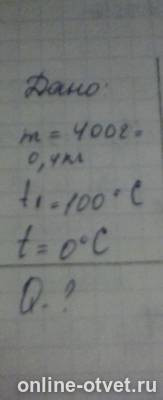 Дано:
m = 400г =
0,4кг
t₁ = 100°C
t = 0°C
Q - ?
online-otvet.ru